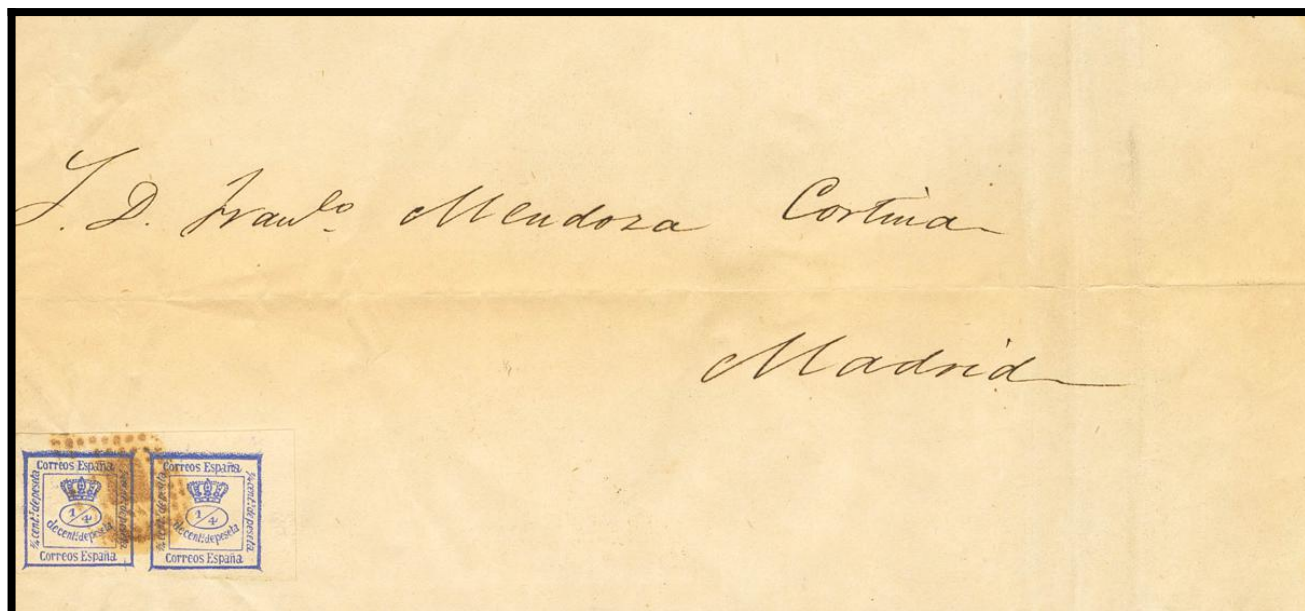 S. D. Fran.co Mendoza Cortina
Madrid
Correos España
¼ cent.s de peseta
1/4
de cent. de peseta
Correos España
Correos España
¼ cent.s de peseta
1/4
de cent. de peseta
¼ cent.s de peseta
Correos España